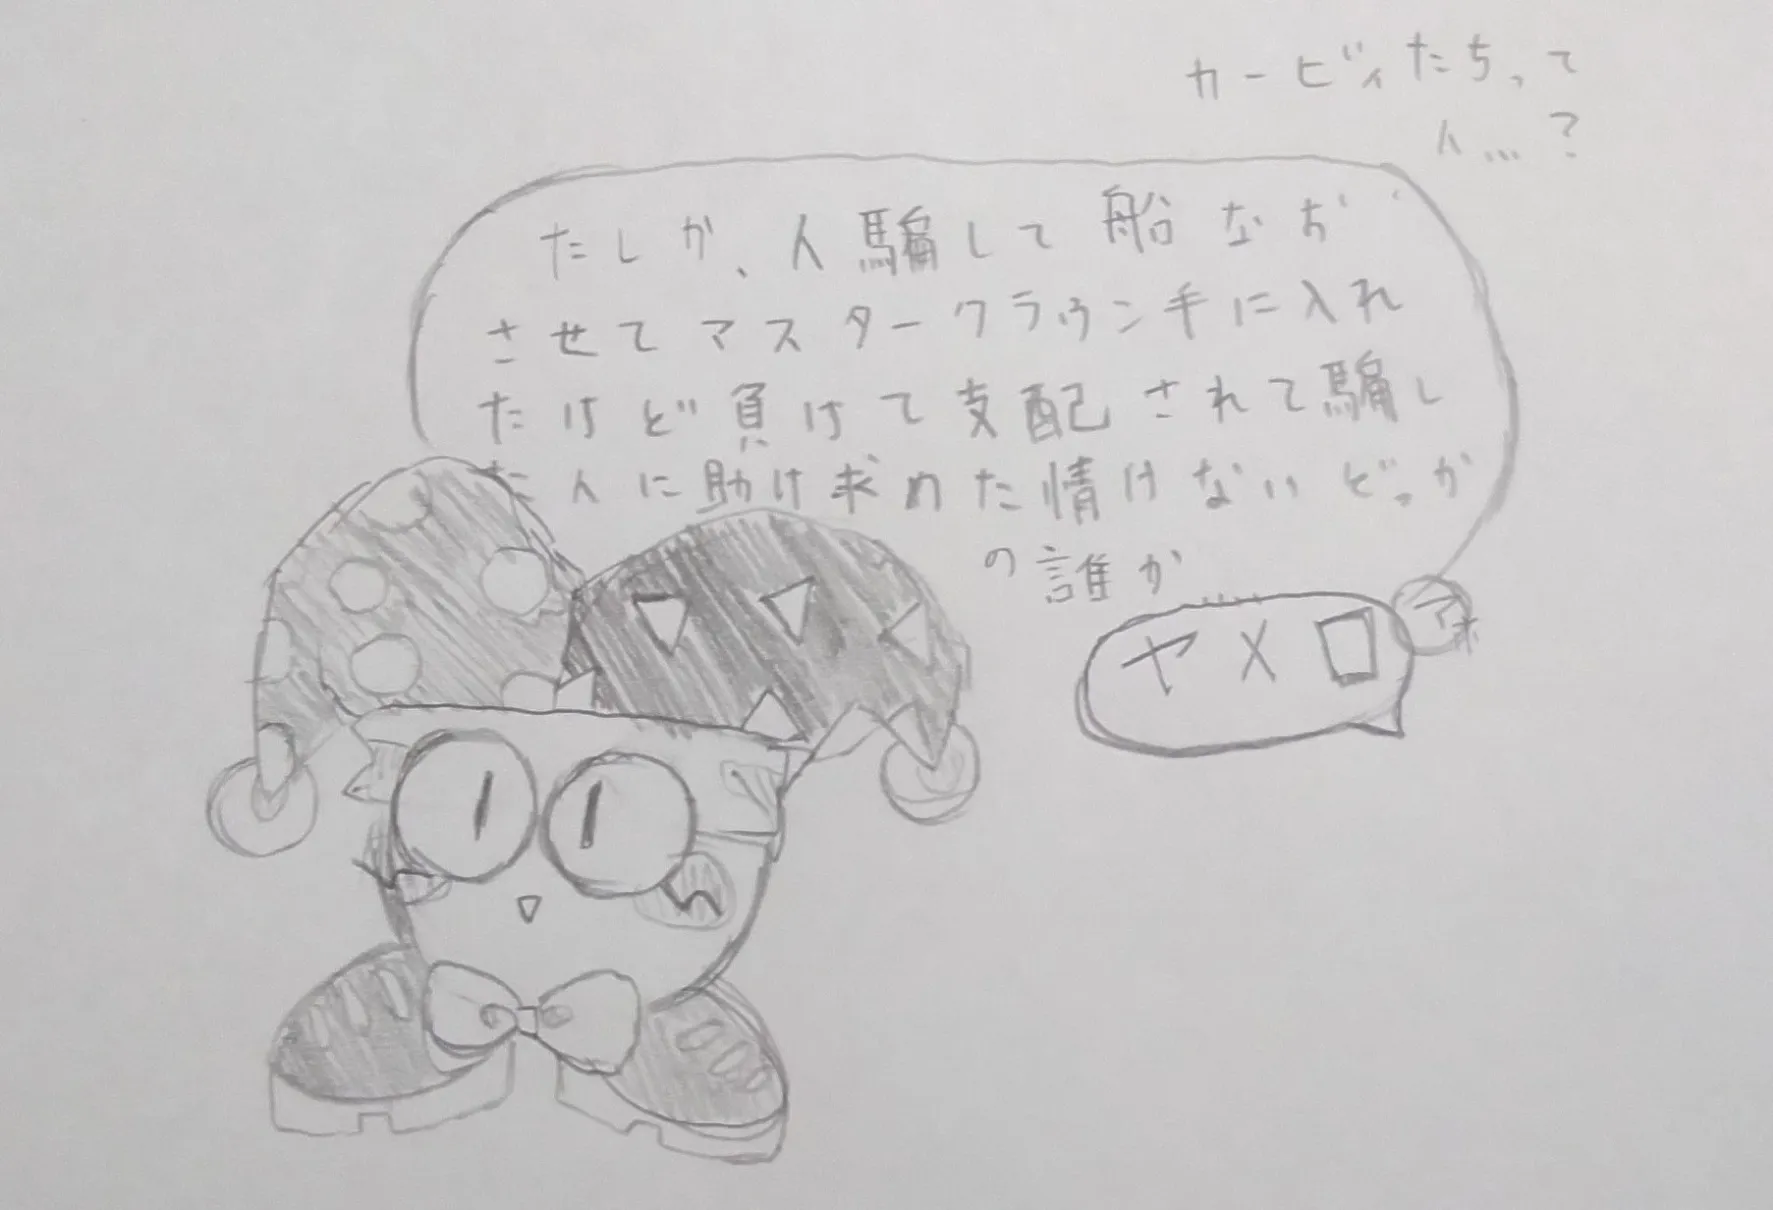 カービィたちって
人…？
たしか、人騙して船なお
させてマスタークラウン手に入れ
たけど負けて支配されて騙し
た人に助け求めた情けないどっか
の誰か……
ヤメロ